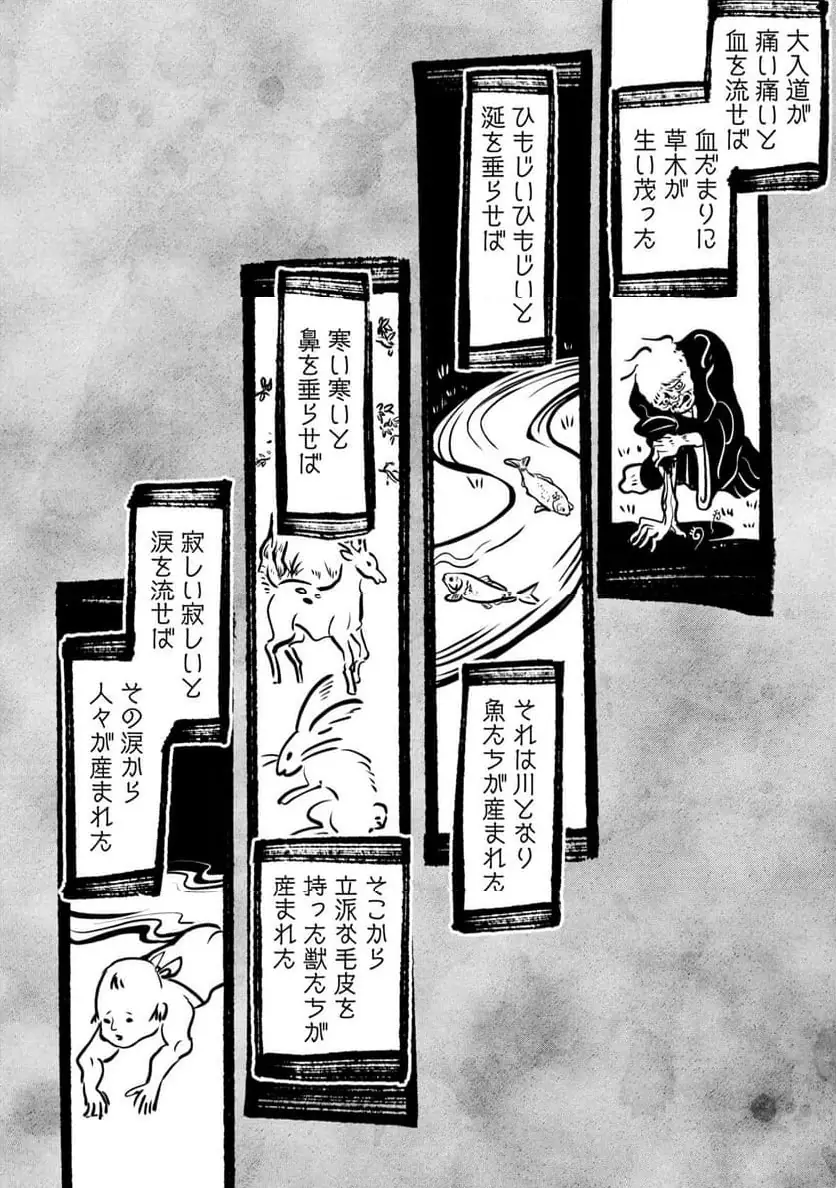 大入道が
痛い痛いと
血を流せば
血だまりに
草木が
生い茂った
ひもじいひもじいと
涎を垂らせば
それは川となり
魚たちが産まれた
寒い寒いと
鼻を垂らせば
そこから
立派な毛皮を
持った獣たちが
産まれた
寂しい寂しいと
涙を流せば
その涙から
人々が産まれた